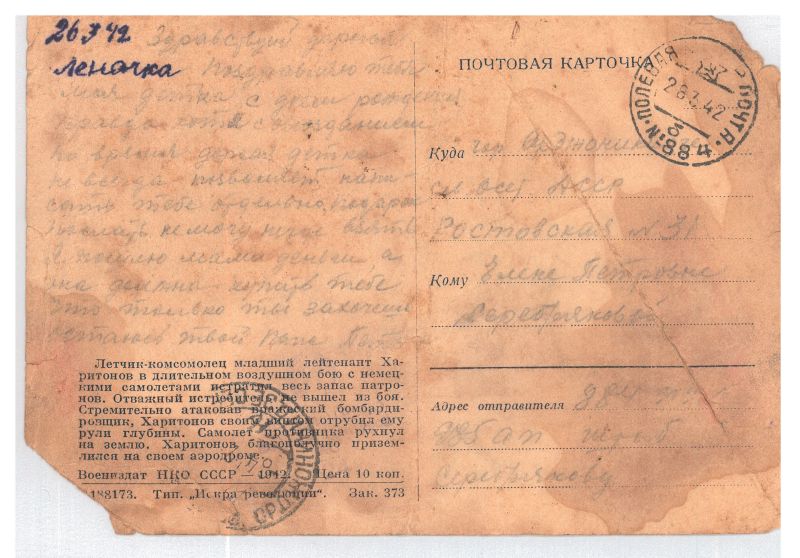 26 3 42
Леночка
Здравствуй дорогая
Поздравляю тебя
моя детка с днем рождения
правда хотя с опозданием
но время детка
не всегда позволяет напи-
сать тебе отдельно, подарок
послать не могу негде взять
я пошлю маме деньги а
она должна купить тебе
что только ты захочешь
остаюсь твой папа
Летчик-комсомолец младший лейтенант Ха-
ритонов в длительном воздушном бою с немец-
кими самолетами истратил весь запас патро-
нов. Отважный истребитель не вышел из боя.
Стремительно атаковав вражеский бомбарди-
ровщик, Харитонов своим винтом отрубил ему
рули глубины. Самолет противника рухнул
на землю. Харитонов благополучно призем-
лился на своем аэродроме.
Воениздат НКО СССР — 1942. Цена 10 коп.
188173. Тип. „Искра революции“. Зак. 373
ПОЧТОВАЯ КАРТОЧКА
ПОЛЕВАЯ ПОЧТА
28 3 42
№ 884
Куда гор Орджоникидзе
АССР
Ростовская № 31
Кому Елене Петровне
Серебряковой
Адрес отправителя
Серебрякову